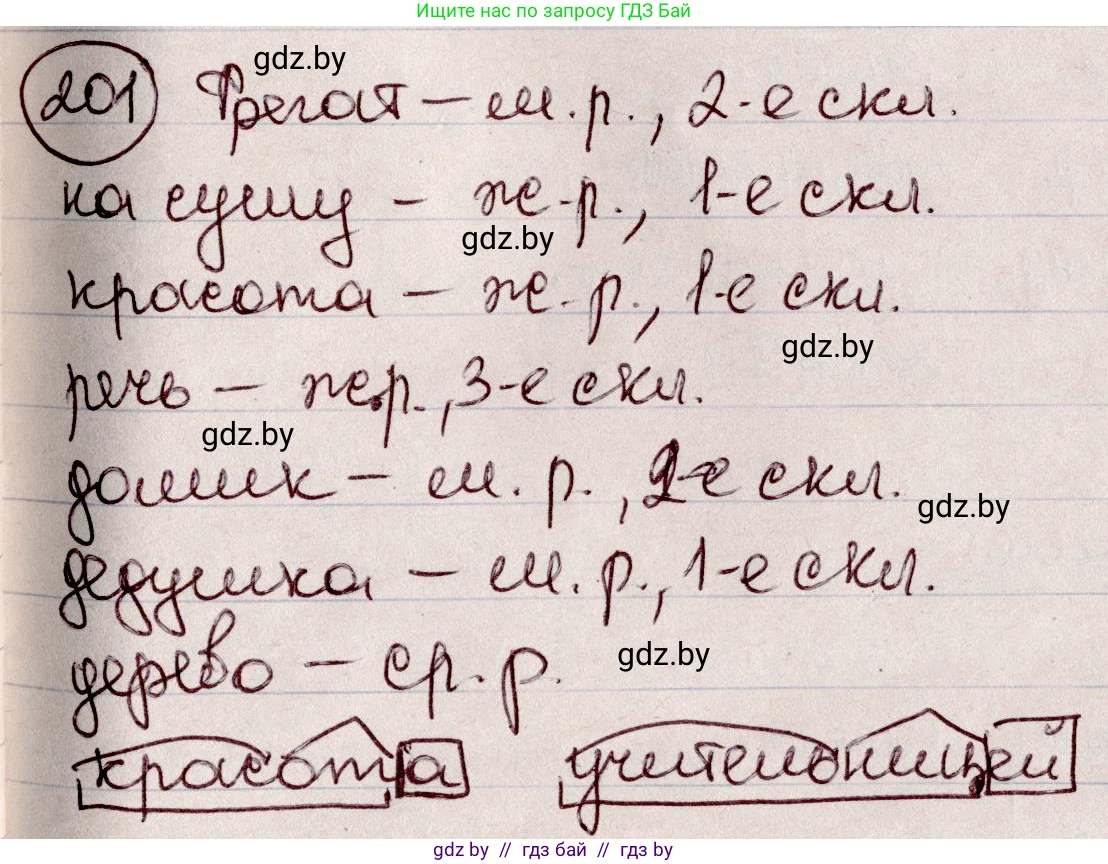 Ищите нас по запросу ГДЗ Бай
gdz.by
201 Фрегат – м.р., 2-е скл.
на сушу – ж.р., 1-е скл.
gdz.by
красота – ж.р., 1-е скл.
gdz.by
речь – ж.р., 3-е скл.
gdz.by
домик – м.р., 2-е скл.
gdz.by
дедушка – м.р., 1-е скл.
дерево – ср.р.
gdz.by
красота учительницей
gdz.by // гдз бай // гдз by